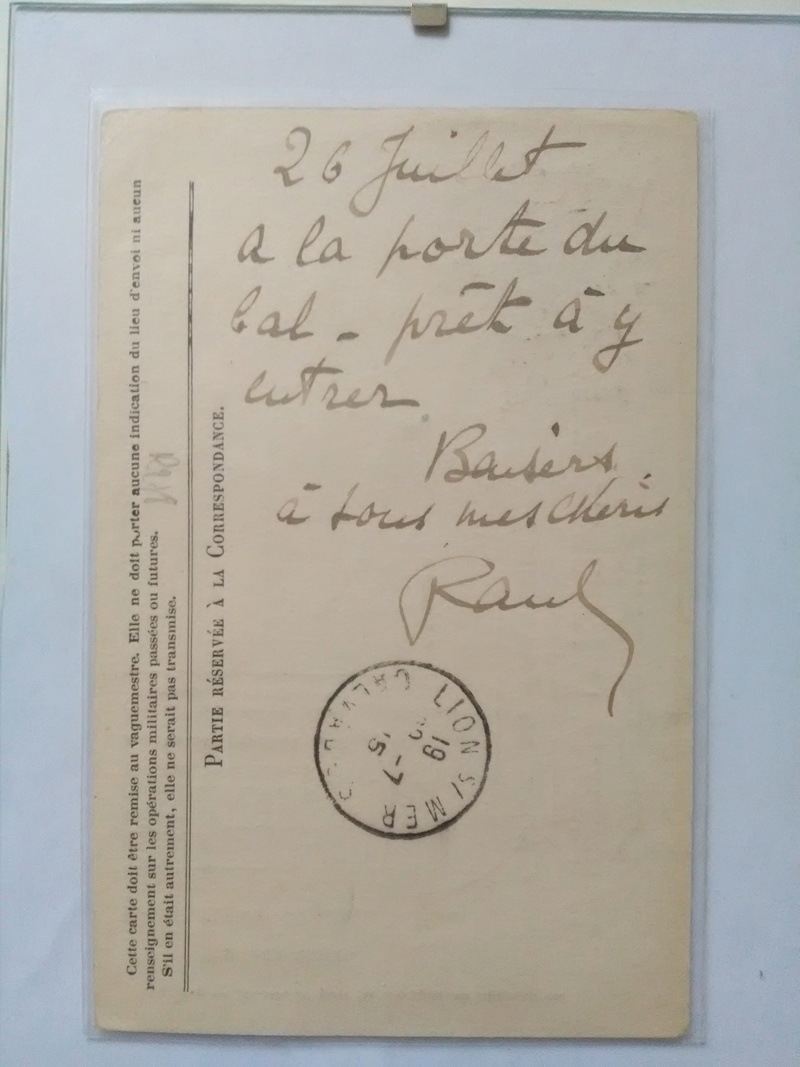 26 Juillet
a la porte du
bal - prêt à y
entrer.
Baisers
à tous mes chéris
Raul
Cette carte doit être remise au vaguemestre. Elle ne doit porter aucune indication du lieu d'envoi ni aucun
renseignement sur les opérations militaires passées ou futures.
S'il en était autrement, elle ne serait pas transmise.
PARTIE RÉSERVÉE À LA CORRESPONDANCE.
LION S/ MER CALVADOS
19
-7
15